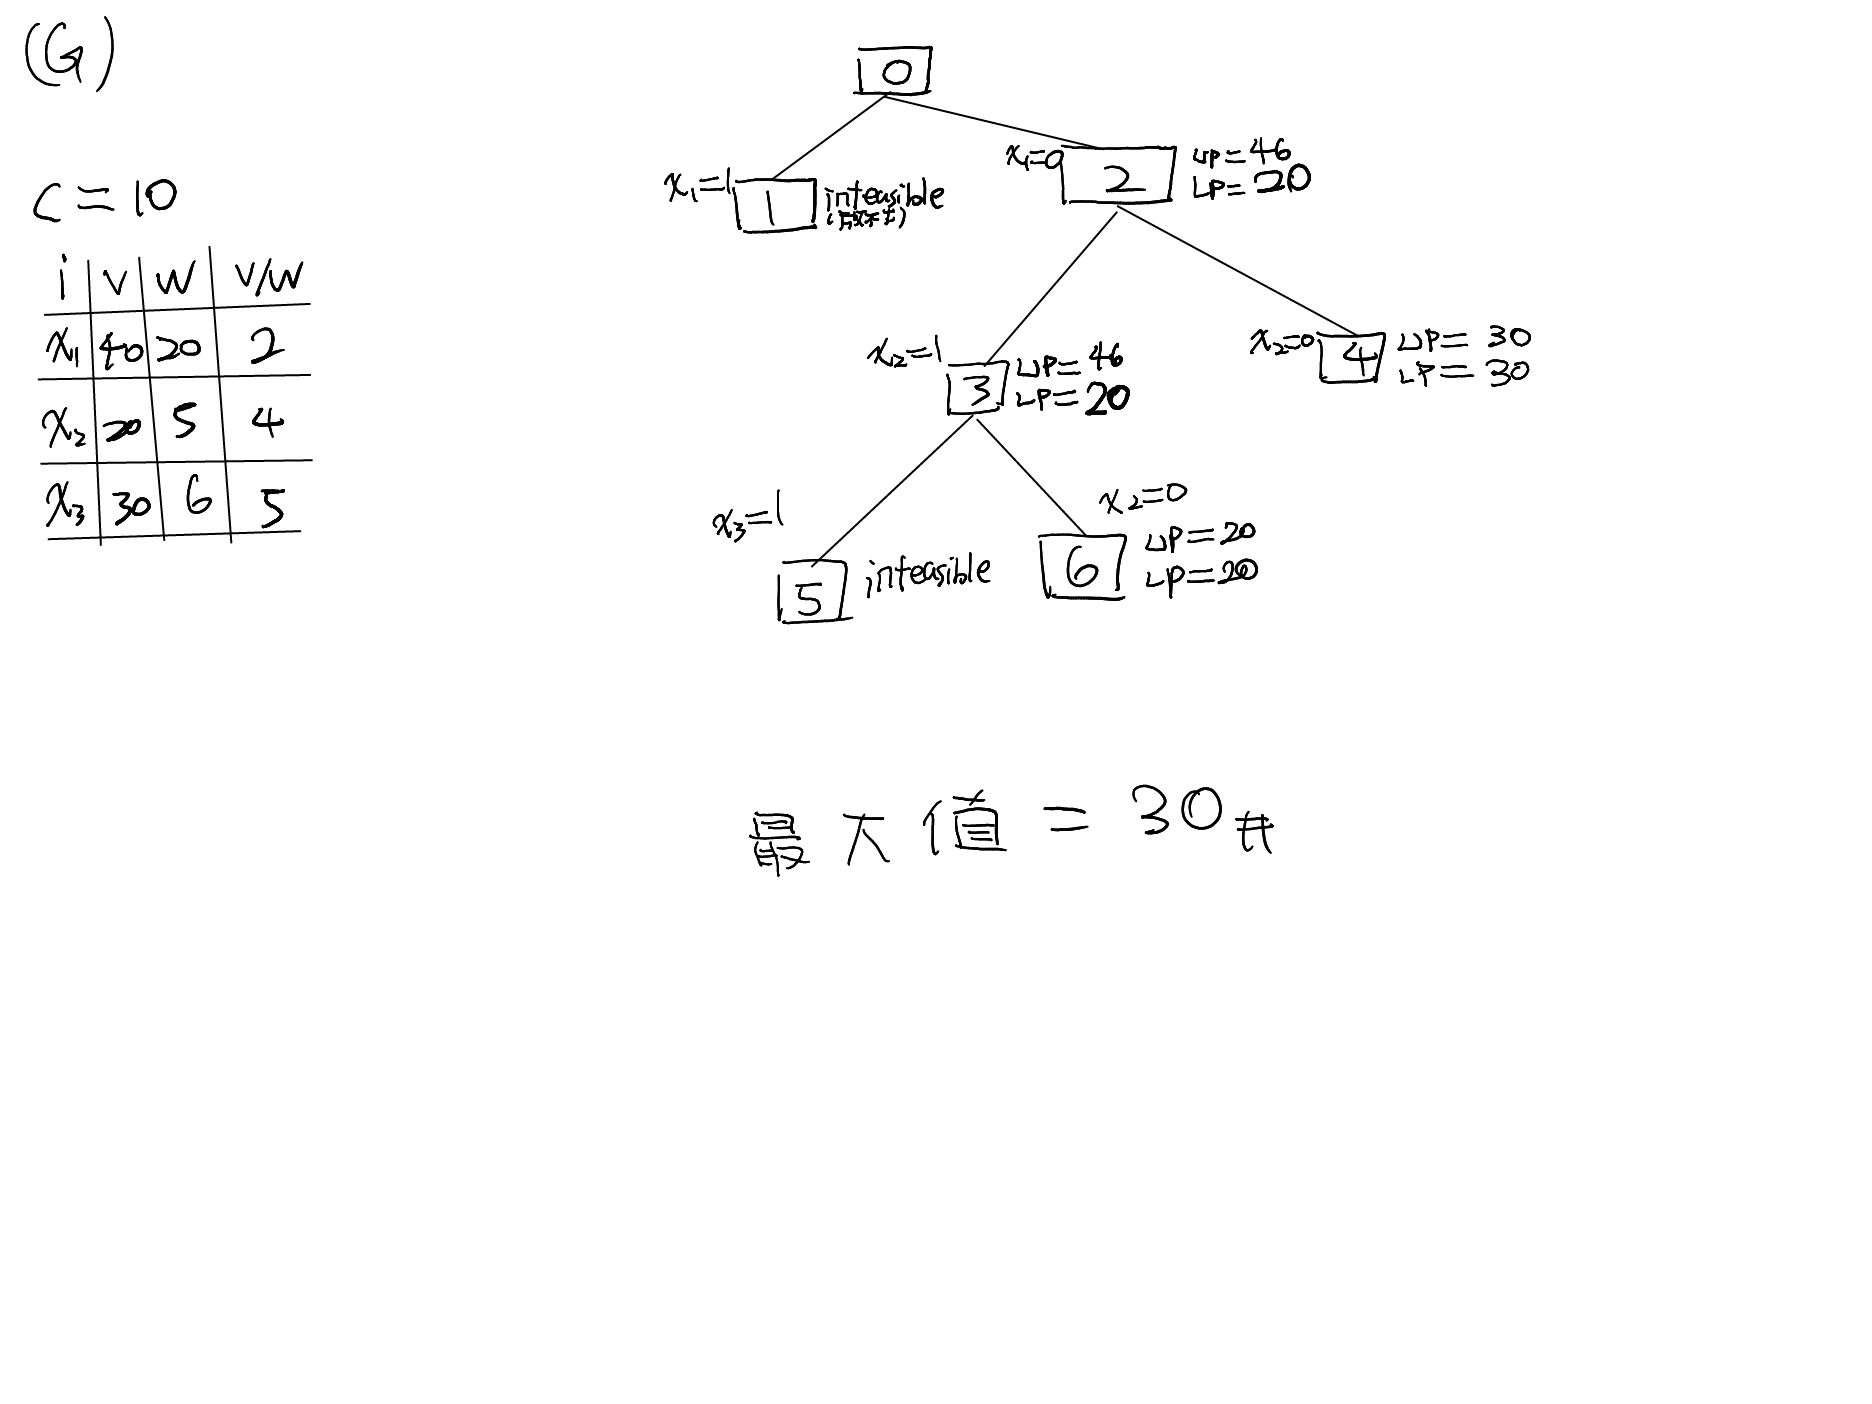 (G)
C = 10
i v w v/w
x1 40 20 2
x2 20 5 4
x3 30 6 5
0
x1=1 1 infeasible
x1=0 2 UP=46
LP=20
x2=1 3 UP=46
LP=20
x2=0 4 UP=30
LP=30
x3=1 5 infeasible
x2=0
6 UP=20
LP=20
最大值 = 30 #